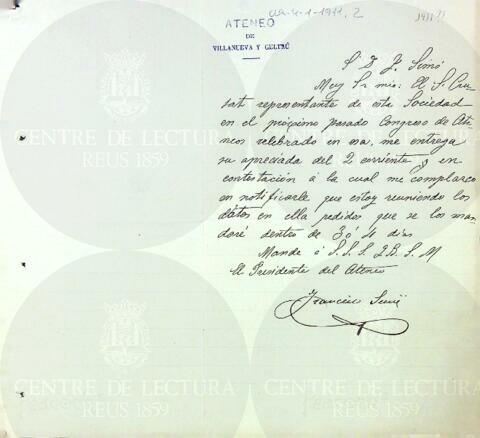 ca-4-1-1911, 2
1911
ATENEO
DE
VILLANUEVA Y GELTRÚ
S. D. J. Simó
Muy Sr. mio: El S. Cru-
sat representante de esta Sociedad
en el próximo pasado Congreso de Ate-
neos celebrado en esa, me entrega
su apreciada del 2 corriente y en
contestación á la cual me complazco
en notificarle que estoy reuniendo los
datos en ella pedidos que se los man-
daré dentro de 3 ó 4 dias
Mande á S. S. S. Q. B. S. M
El Presidente del Ateneo
Francisco
CENTRE DE LECTURA
REUS 1859
CENTRE DE LECTURA
REUS 1859
CENTRE DE LECTURA
REUS 1859
CENTRE DE LECTURA
REUS 1859